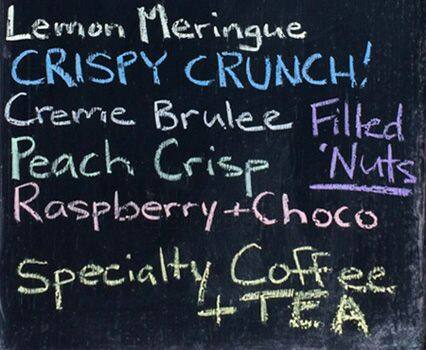 Lemon Meringue
CRISPY CRUNCH!
Creme Brulee
Filled
'Nuts
Peach Crisp
Raspberry + Choco
Specialty Coffee
+ TEA